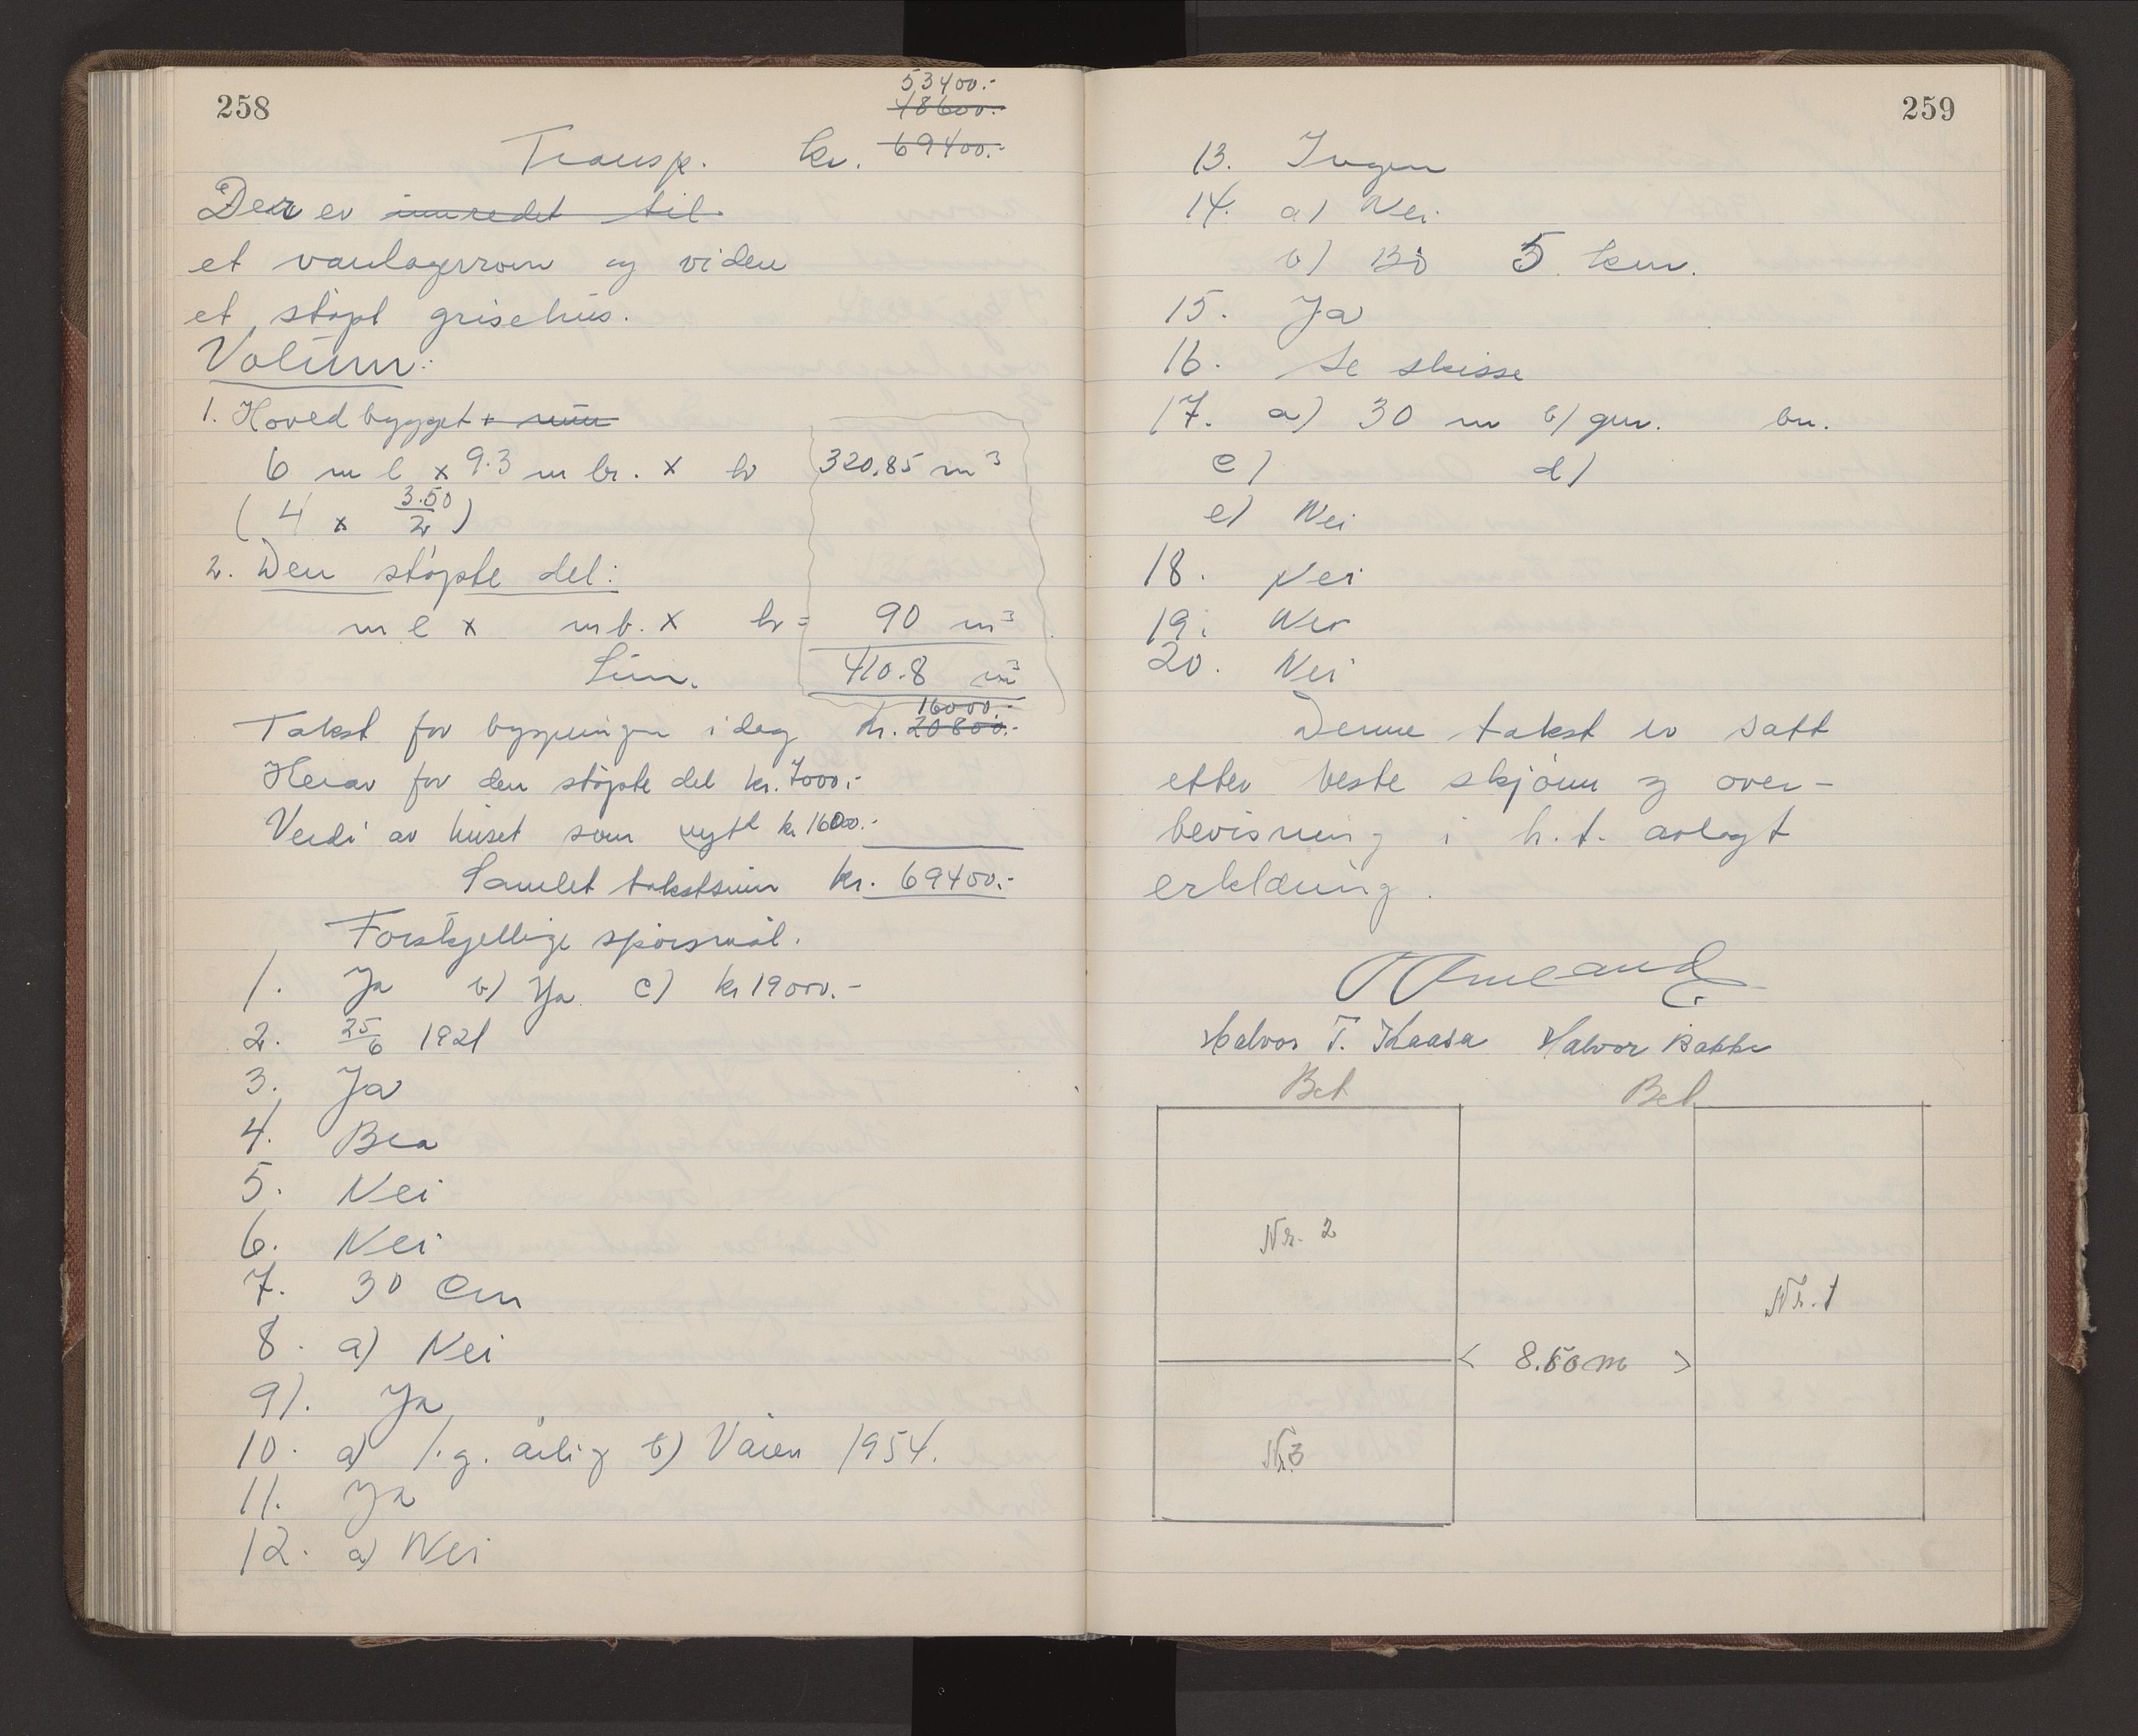 258
53400.-
48600.-
Transp. kr. 69400.-
Der er innredet til
et varelagerrom og viden
et støpt grisehus.
Volum:
1. Hovedbygget + 
6 m l x 9.3 m br. x h 320.85 m³
(4 x 3.50/2)
2. Den støpte del:
m l x m b. x h = 90 m³
Sum. 410.8 m³
16000.-
Takst for bygningen i dag kr. 20800.-
Herav for den støpte del kr. 7000.-
Verdi av huset som nytt kr 16000.-
Samlet takstsum kr. 69400.-
Forskjellige spörsmål.
1. Ja b) Ja c) kr 19000.-
2. 25/6 1921
3. Ja
4. Bra
5. Nei
6. Nei
7. 30 cm
8. a) Nei
9). Ja
10. a) 1.g. årlig b) Våren 1954.
11. Ja
12. a) Nei
259
13. Ingen
14. a) Nei
b) Bö 5 km.
15. Ja
16. Se skisse
17. a) 30 m b) gnr. bn.
c) d)
e) Nei
18. Nei
19. Nei
20. Nei
Denne takst er satt
etter beste skjönn og over-
bevisning i h.t. avlagt
erklæring.
Halvor T. Kaasa Halvor Bakke
Bet Bet.
Nr. 2
Nr. 1
< 8.50 m >
Nr. 3